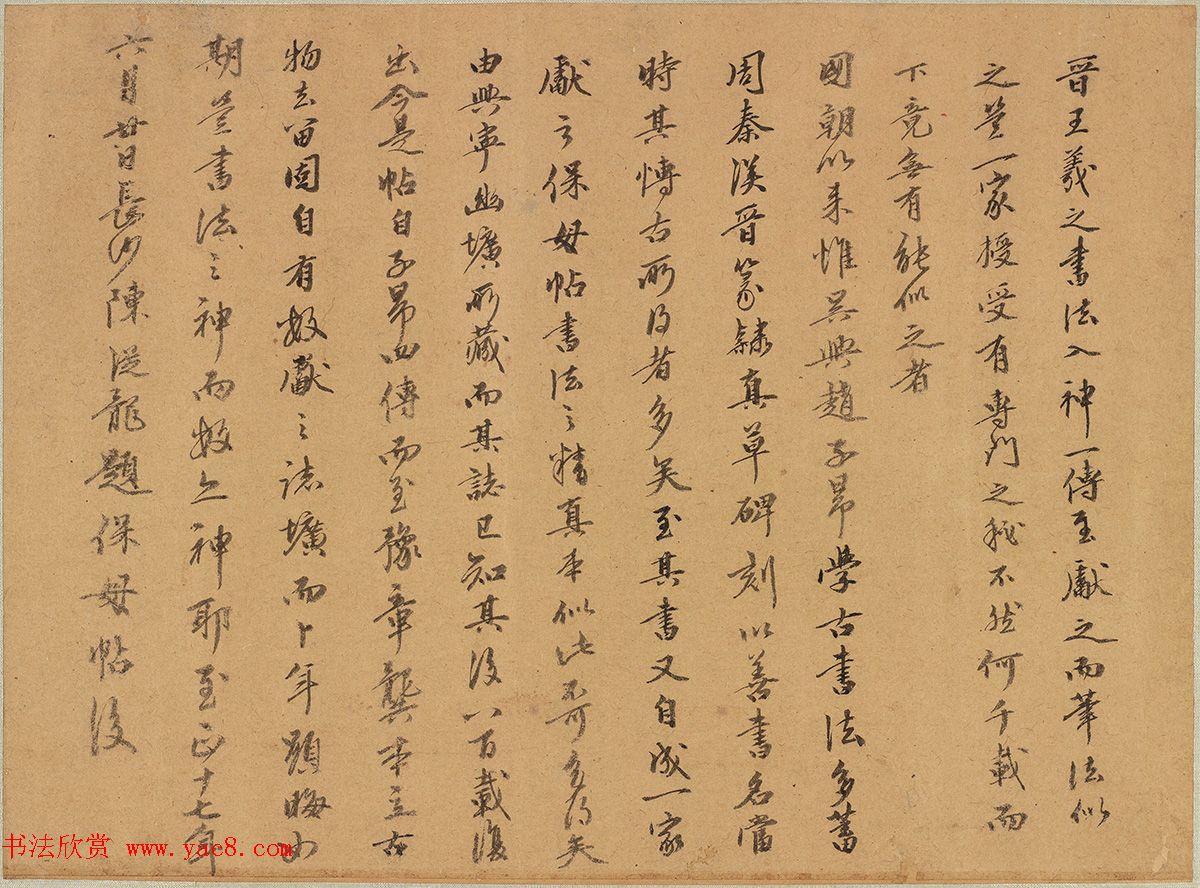 晉王羲之書法入神一傳至獻之而筆法似
之蓋一家授受有專門之祕不然何千載而
下竟無有能似之者
國朝以來惟吳興趙子昂學古書法多蓄
周秦漢晉篆隸真草碑刻以善書名當
時其博古所得者多矣至其書又自成一家
獻之保母帖書法之精真本似此不可多得矣
由興寧幽壙所藏而其誌已知其後八百載復
出今是帖自子昂四傳而至豫章龔本立古
物去留固自有數獻之誌壙而卜年顯晦如
期豈書法之神而數亦神耶至正十七年
六月廿日長沙陳從龍題保母帖後
书法欣赏 www.yac8.com